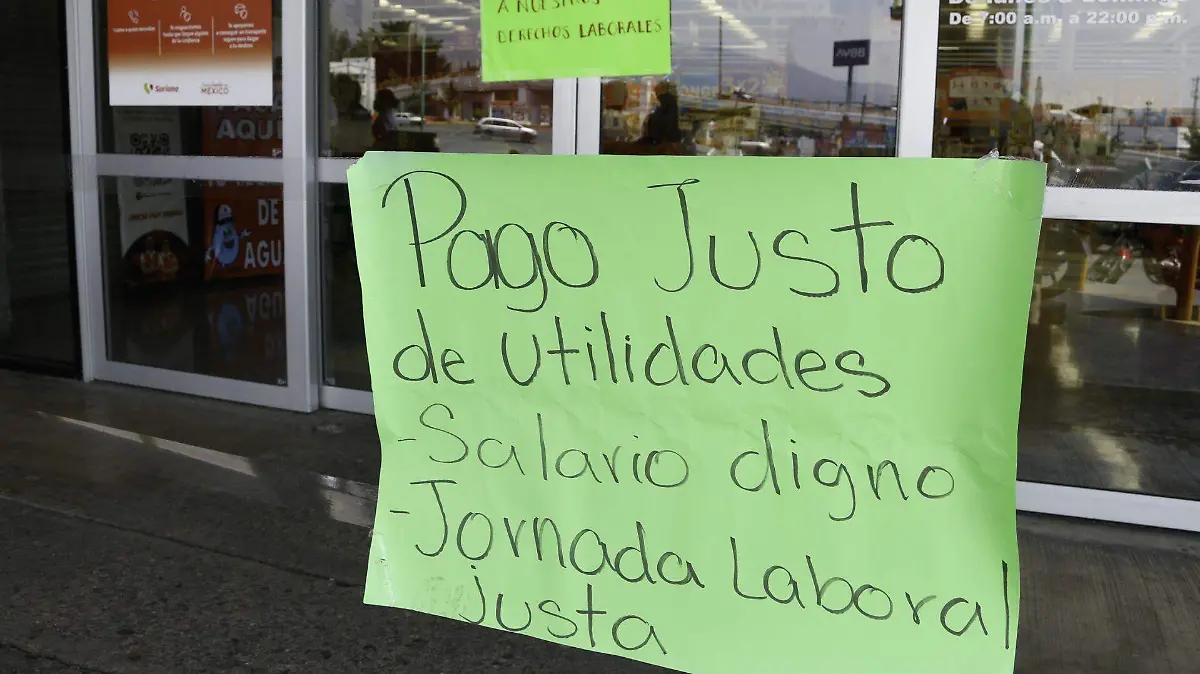 A NUESTROS
DERECHOS LABORALES
De 7:00 a.m. a 22:00 p.m.
Soriana
MÉXICO
AQUÍ
DE
AGU
Pago Justo
de utilidades
-Salario digno
-Jornada Laboral
justa